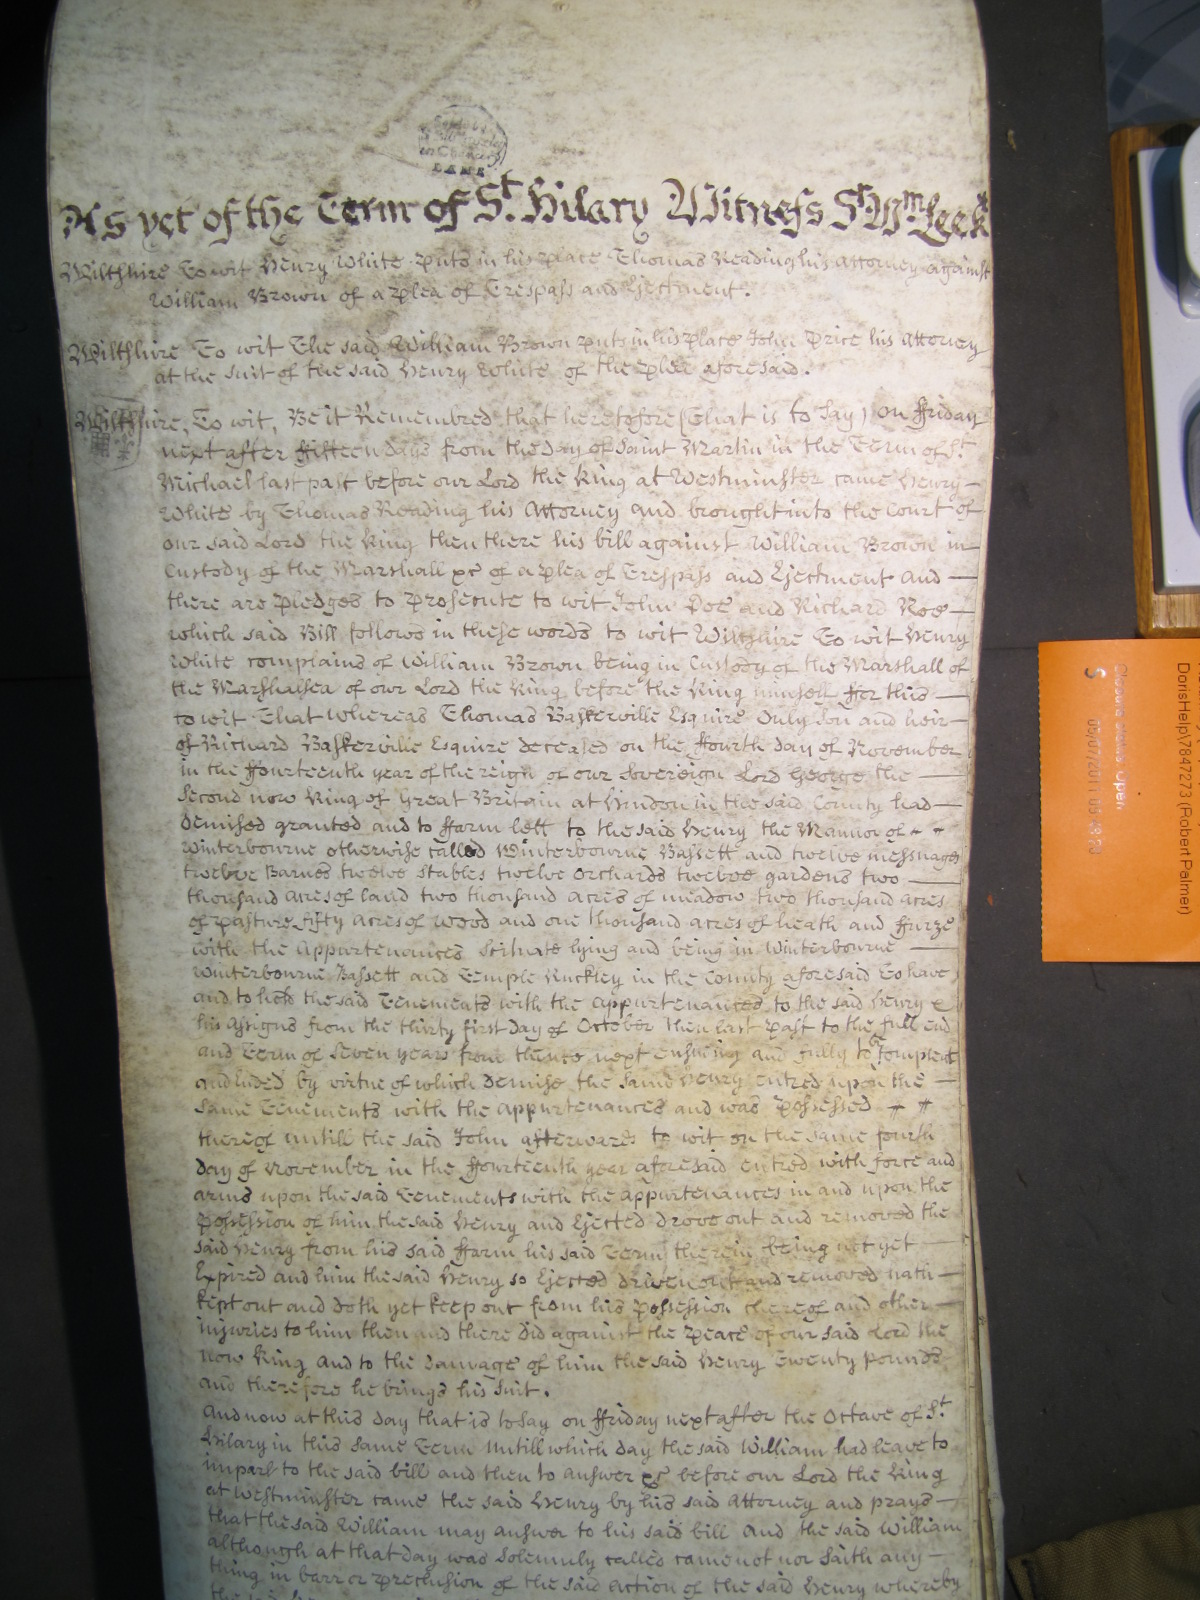 As yet of the Term of St. Hilary Witness Sr Wm Leek
Wiltshire To wit Henry White puts in his place Thomas Reading his Attorney against
William Brown of a plea of Trespass and Ejectment.
Wiltshire To wit The said William Brown puts in his place John Price his Attorney
at the Suit of the said Henry White of the plea aforesaid.
Wiltshire, To wit, Be it Remembred that heretofore (That is to say) on ffriday
next after ffifteen days from the day of Saint Martin in the Term of St.
Michael last past before our Lord the King at Westminster came Henry
White by Thomas Reading his Attorney and brought into the Court of
our said Lord the King then there his bill against William Brown in
Custody of the Marshall &c of a plea of Trespass and Ejectment and
there are pledges to prosecute to wit John Doe and Richard Roe
which said Bill follows in these words to wit Wiltshire To wit Henry
White complains of William Brown being in Custody of the Marshall of
the Marshalsea of our Lord the King before the King himself ffor this
to wit That whereas Thomas Baskerville Esquire Only Son and heir
of Richard Baskerville Esquire deceased on the ffourth day of November
in the ffourteenth year of the reign of our Sovereign Lord George the
Second now King of Great Britain at Hindon in the said County had
demised granted and to ffarm lett to the said Henry the Mannor of
Winterbourne otherwise called Winterbourne Bassett and twelve messuages
twelve Barnes twelve stables twelve orchards twelve gardens two
thousand acres of land two thousand acres of meadow two thousand acres
of pasture fifty acres of wood and one thousand acres of heath and ffurze
with the Appurtenances Scituate lying and being in Winterbourne
Winterbourne Bassett and Temple Rockley in the County aforesaid To have
and to hold the said Tenements with the Appurtenances to the said Henry &
his Assigns from the thirty first day of October then last past to the full end
and Term of Seven years from thence next ensueing and fully to be Compleat
and Ended by virtue of which demise the said Henry entred upon the
same Tenements with the appurtenances and was possessed
thereof untill the said John afterwards to wit on the same fourth
day of November in the ffourteenth year aforesaid entred with force and
arms upon the said Tenements with the appurtenances in and upon the
possession of him the said Henry and Ejected drove out and removed the
said Henry from his said ffarm his said Term therein being not yet
Expired and him the said Henry so Ejected driven out and removed hath
kept out and doth yet keep out from his possession thereof and other
injuries to him then and there did against the peace of our said Lord the
now King and to the damage of him the said Henry Twenty pounds
and therefore he brings his Suit.
And now at this day that is to say on ffriday next after the Octave of St.
Hilary in this same Term untill which day the said William had leave to
imparl to the said bill and then to answer &c before our Lord the King
at Westminster came the said Henry by his said Attorney and prays
that the said William may answer to his said bill And the said William
although at that day was solemnly called came not nor saith any
thing in barr or preclusion of the said action of the said Henry whereby
DorisHelp\7847273 (Robert Palmer)